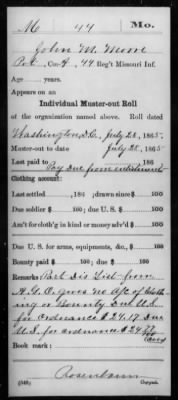 M | 44 | Mo.
John M. Moore
Pvt., Co. A, 44 Reg't Missouri Inf.
Age years.
Appears on an
Individual Muster-out Roll
of the organization named above. Roll dated
Washington, D.C., July 28, 1865.
Muster-out to date July 28, 1865.
Last paid to , 186
Pay due from enlistment
Clothing account:
Last settled , 186 ; drawn since $ 100
Due soldier $ 100; due U.S. $ 100
Am't for cloth'g in kind or money adv'd $ 100
Due U.S. for arms, equipments, &c., $ 100
Bounty paid $ 100; due $ 100
Remarks: List from
A.G.O. gives no a/c of cloth
ing or Bounty. Due U.S.
for ordnance $24.17. Due
U.S. for ordnance $24
Book mark:
Rosenbaum
(340) Copyist.